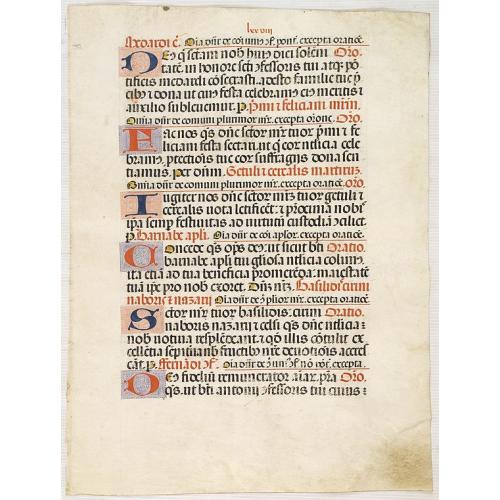 lxxviij
Medardi ẽ. Oĩa dñr de cõmuni ↄf. pont. excepta oratiõe.
Deus q̃ sctam nob̃ huiꝰ diei solẽni Oro.
tatẽ. in honore scti ↄfessoris tui atq̃ põ
tificis medardi cõsecrasti. adesto familie tue p̃
cibꝰ ⁊ dona ut cuiꝰ festa celebramꝰ. eiꝰ meritis ⁊
auxilio subleuemur. P. Primi ⁊ feliciani mr̃m.
Omĩa dñr de comuni plurimor̃ mr̃. excepta orõne. Oro.
Fac nos q̃s dñe sctor̃ mr̃ tuor̃ p̃mi ⁊ fe
liciani festa sectari. ut quor̃ ndlicia cele
bramꝰ. ꝓtectionis tue cor̃ suffragijs dona sen
tiamus. Per dñm. Getuli ⁊ cerealis martirũ.
Omĩa dñr de comuni plurimor̃ mr̃. excepta oratiõe. orõ.
Iugiter nos dñe sctor̃ mr̃ tuor̃ getuli ⁊
cerealis uota letificẽt: ⁊ ꝓximã nobis
ip̃a semꝑ festiuitas ad uirtutũ custodiã ↄlicet.
P. Barnabe apli. Oĩa dñr de cõi aplor̃. excepta oratiõe.
Concede q̃s oĩps deꝰ: ut sicut bti Oratio.
barnabe apli tui gl̃iosa ndlicia colim
ita etiã ad tua beneficia ꝓmerẽda: maiestatẽ
tuã ip̃e pro nob̃ exoret. Dñm nr̃z. Basilidi cirini
naboris ⁊ nazarij. Oĩa dñr de ↄ̃ plior̃ mr̃. excepta oratiõe.
Sctor̃ mr̃ tuor̃ basilidis: cirini Oratio.
naboris nazarij ⁊ celsi q̃s dñe ndlicia:
nob̃ uotiua resplẽdeant. ⁊ qd̃ illis cõtulit ex
cellẽtia sẽpitna. nob̃ fructibꝰ nr̃e deuotiõis acces
cat. P.
Deus fideliũ remunerator aiar̃. p̃ra Orõ.
q̃s. ut bti antonij ↄfessoris tui cuius: